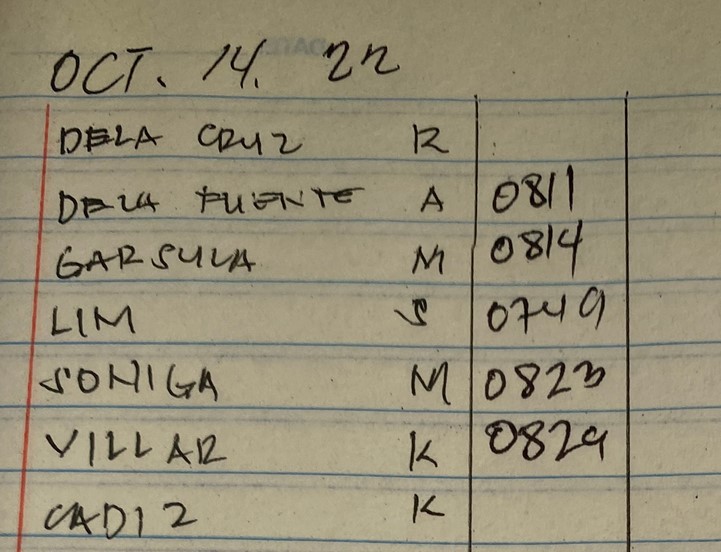 OCT. 14. 22
DELA CRUZ R
DELA FUENTE A 0811
GARSULA M 0814
LIM S 0749
SONIGA M 0823
VILLAR K 0829
CADIZ K